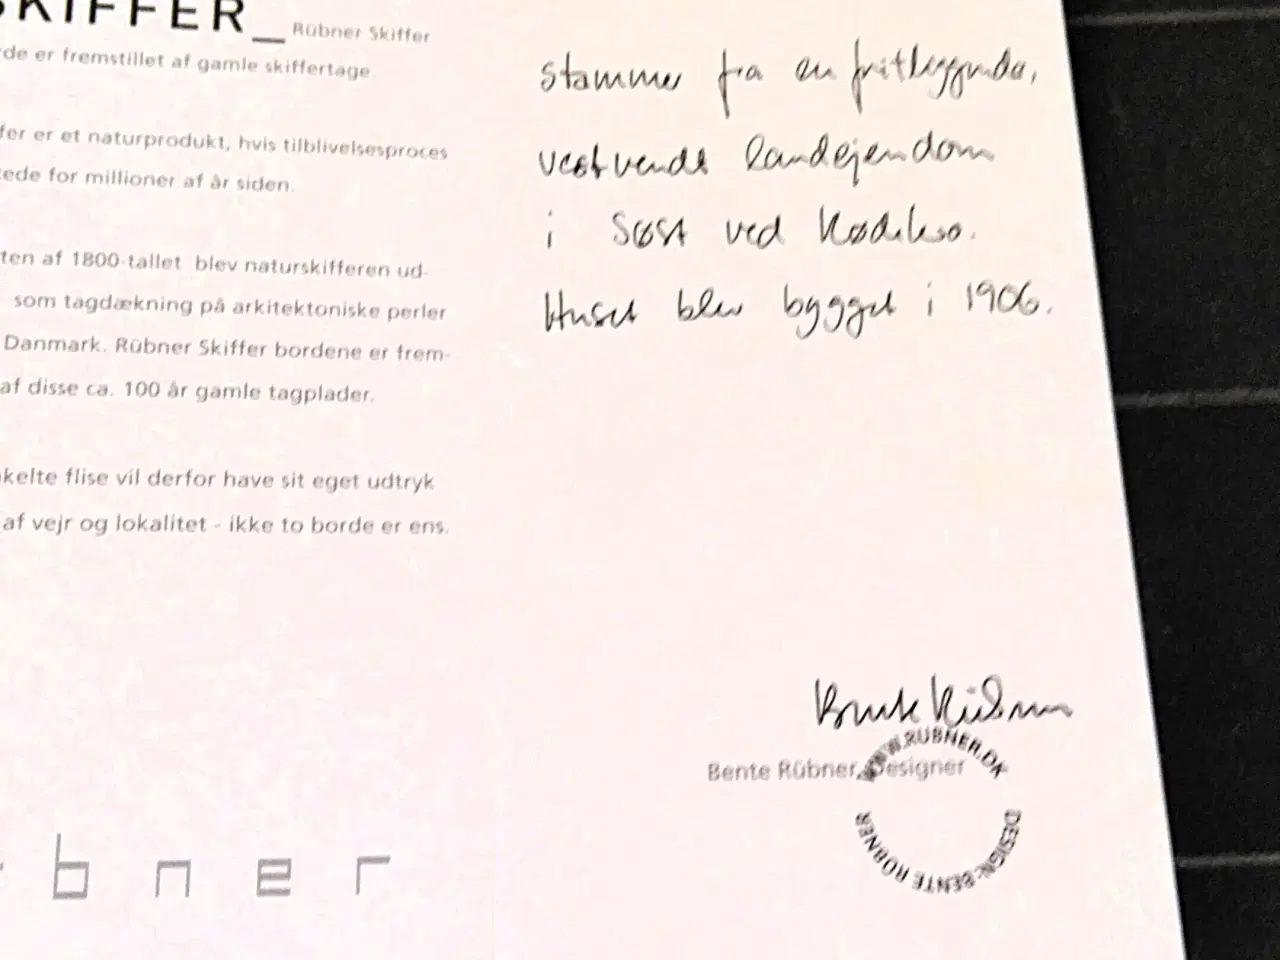 SKIFFER_ Rübner Skiffer
rde er fremstillet af gamle skiffertage.
fer er et naturprodukt, hvis tilblivelsesproces
ede for millioner af år siden.
ten af 1800-tallet blev naturskifferen ud-
som tagdækning på arkitektoniske perler
Danmark. Rübner Skiffer bordene er frem-
af disse ca. 100 år gamle tagplader.
kelte flise vil derfor have sit eget udtryk
af vejr og lokalitet - ikke to borde er ens.
bner
stammer fra en fritliggende,
vestvendt landejendom
i Søst ved
Huset blev bygget i 1906.
Bente Rübner
Bente Rübner, Designer
WWW.RUBNER.DK
DESIGN: BENTE RÜBNER